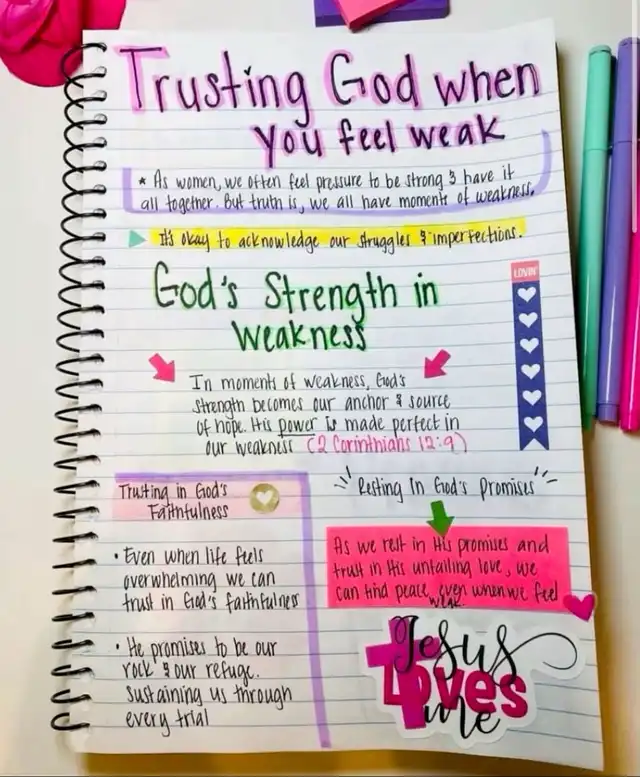 Trusting God when
you feel weak
* As women, we often feel pressure to be strong & have it
all together. But truth is, we all have moments of weakness.
It's okay to acknowledge our struggles & imperfections.
God's Strength in
Weakness
LOVIN'
In moments of weakness, God's
strength becomes our anchor & source
of hope. His power is made perfect in
our weakness (2 Corinthians 12:9)
Trusting in God's
Faithfulness
• Even when life feels
overwhelming we can
trust in God's faithfulness
• He promises to be our
rock & our refuge.
Sustaining us through
every trial
Resting In God's Promises
As we rest in His promises and
trust in His unfailing love, we
can find peace even when we feel
weak.
Jesus
Loves
me